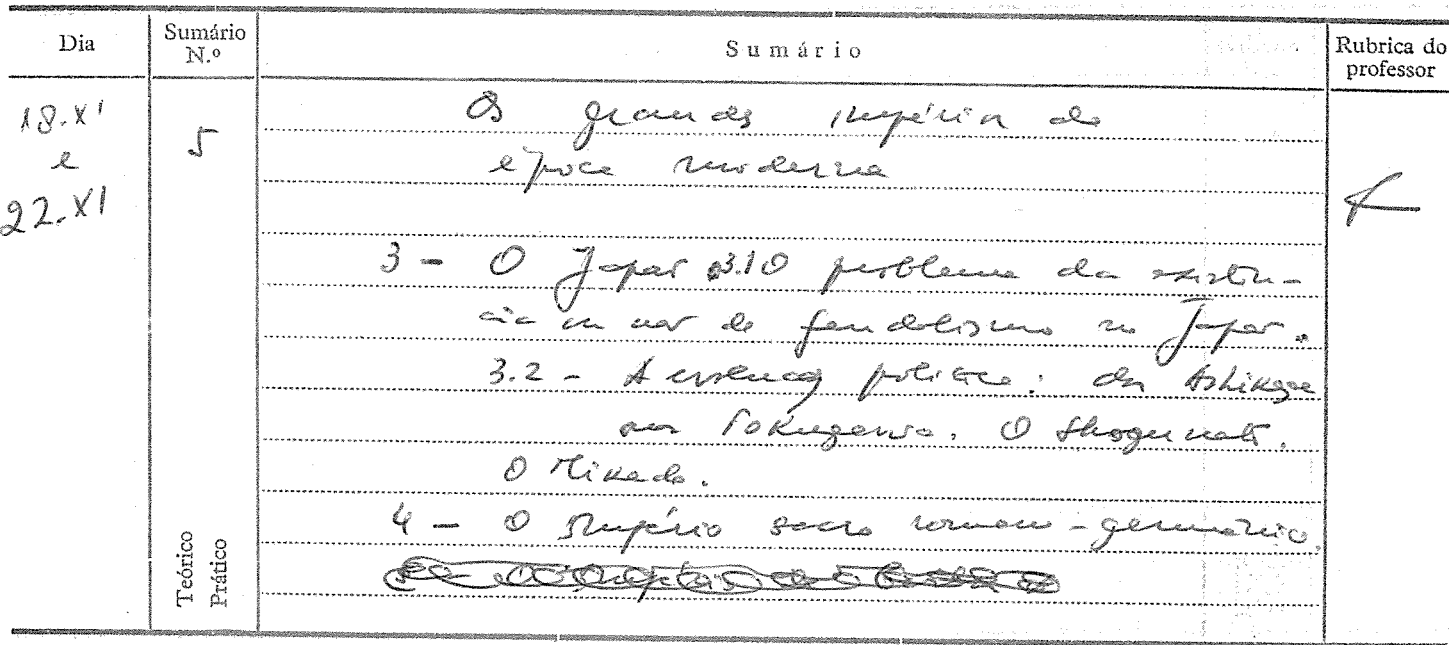 Dia
Sumário N.º
Sumário
Rubrica do professor
18.XI
e
22.XI
5
Os grandes impérios da
época moderna
3 - O Japão 3.1 O problema da existên-
cia ou não de feudalismo no Japão.
3.2 - A evolução política: dos Ashikaga
aos Tokugawa. O Shogunato.
O Mikado.
4 - O Império sacro romano-germânico.
Teórico
Prático